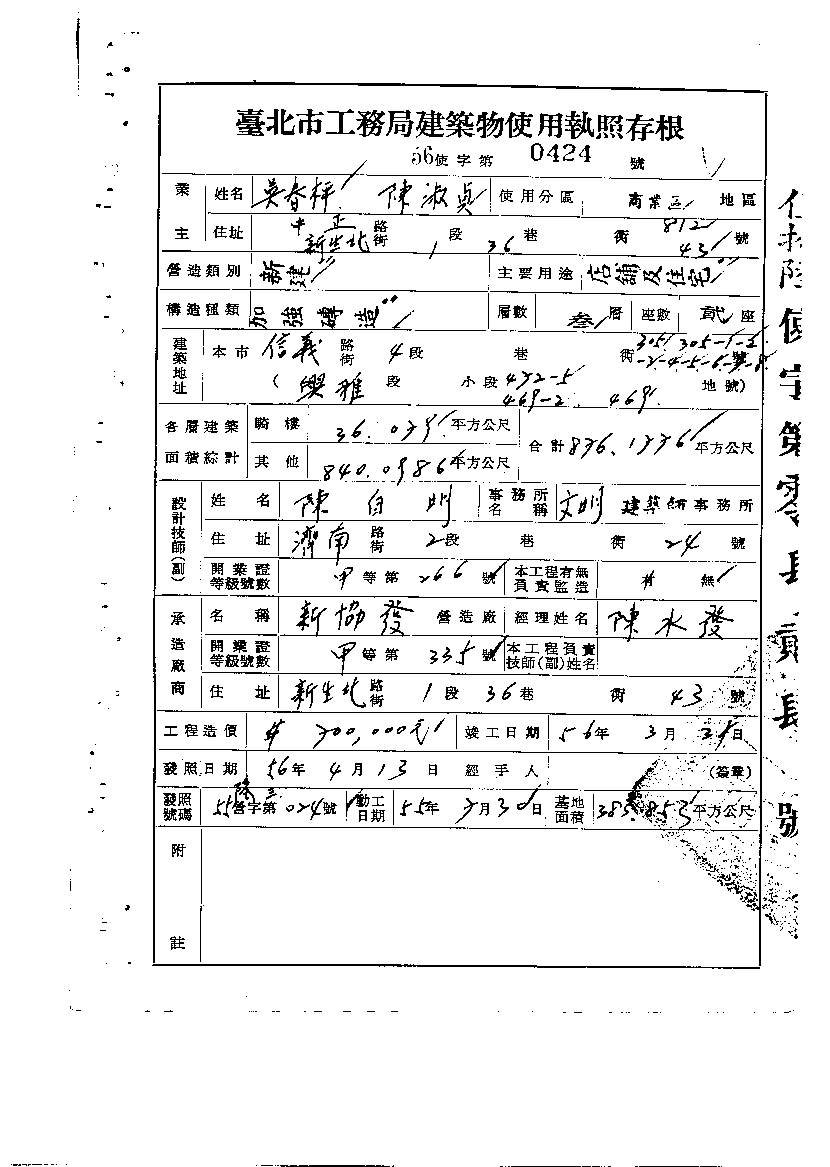 臺北市工務局建築物使用執照存根
56使字第 0424 號
業主 姓名 吳春枰 陳淑貞 使用分區 商業區 地區
住址 中正 新生北 路街 1段 36巷 衖 812 43號
營造類別 新建 主要用途 店舖及住宅
構造種類 加強磚造 層數 叁層 座數 貳座
建築地址 本市 信義 路街 4段 巷 衖 305 305-1-2 -2-4-5-6-7-8 號
(興雅 段 小段 472-5 469-2. 469. 地號)
各層建築面積綜計 騎樓 36.079 平方公尺 合計 876.1776 平方公尺
其他 840.0986 平方公尺
設計技師(副) 姓名 陳自明 事務所名稱 文明 建築師事務所
住址 濟南 路街 2段 巷 衖 24 號
開業證等級號數 甲等第 266 號 本工程有無負責監造 有 無
承造廠商 名稱 新協發 營造廠 經理姓名 陳水發
開業證等級號數 甲等第 335 號 本工程負責技師(副)姓名
住址 新生北 路街 1段 36巷 衖 43 號
工程造價 700,000元 竣工日期 56年 3月 31日
發照日期 56年 4月 13日 經手人 (簽章)
發照號碼 55營字第 024號 動工日期 55年 7月 30日 基地面積 385.853 平方公尺
附註
使字第零
號